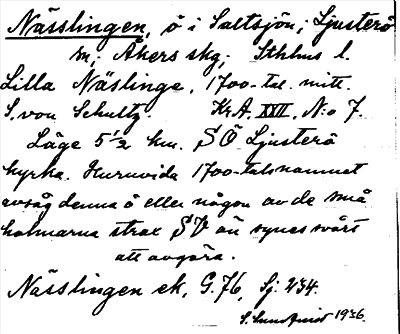 Nässlingen, ö i Saltsjön, Ljusterö
sn; Åkers skg; Sthlms l.
Lilla Näslinge, 1700-tal. mitt.
S. von Schultz. Kr.A. XXII, N:o 7.
Läge 5 1/2 km. SÖ Ljusterö
kyrka. Huruvida 1700-talsnamnet
avsåg denna ö eller någon av de små
holmarna strax SV än synes svårt
att avgöra.
Nässlingen ek. G. 76, Sj: 234.
1936.